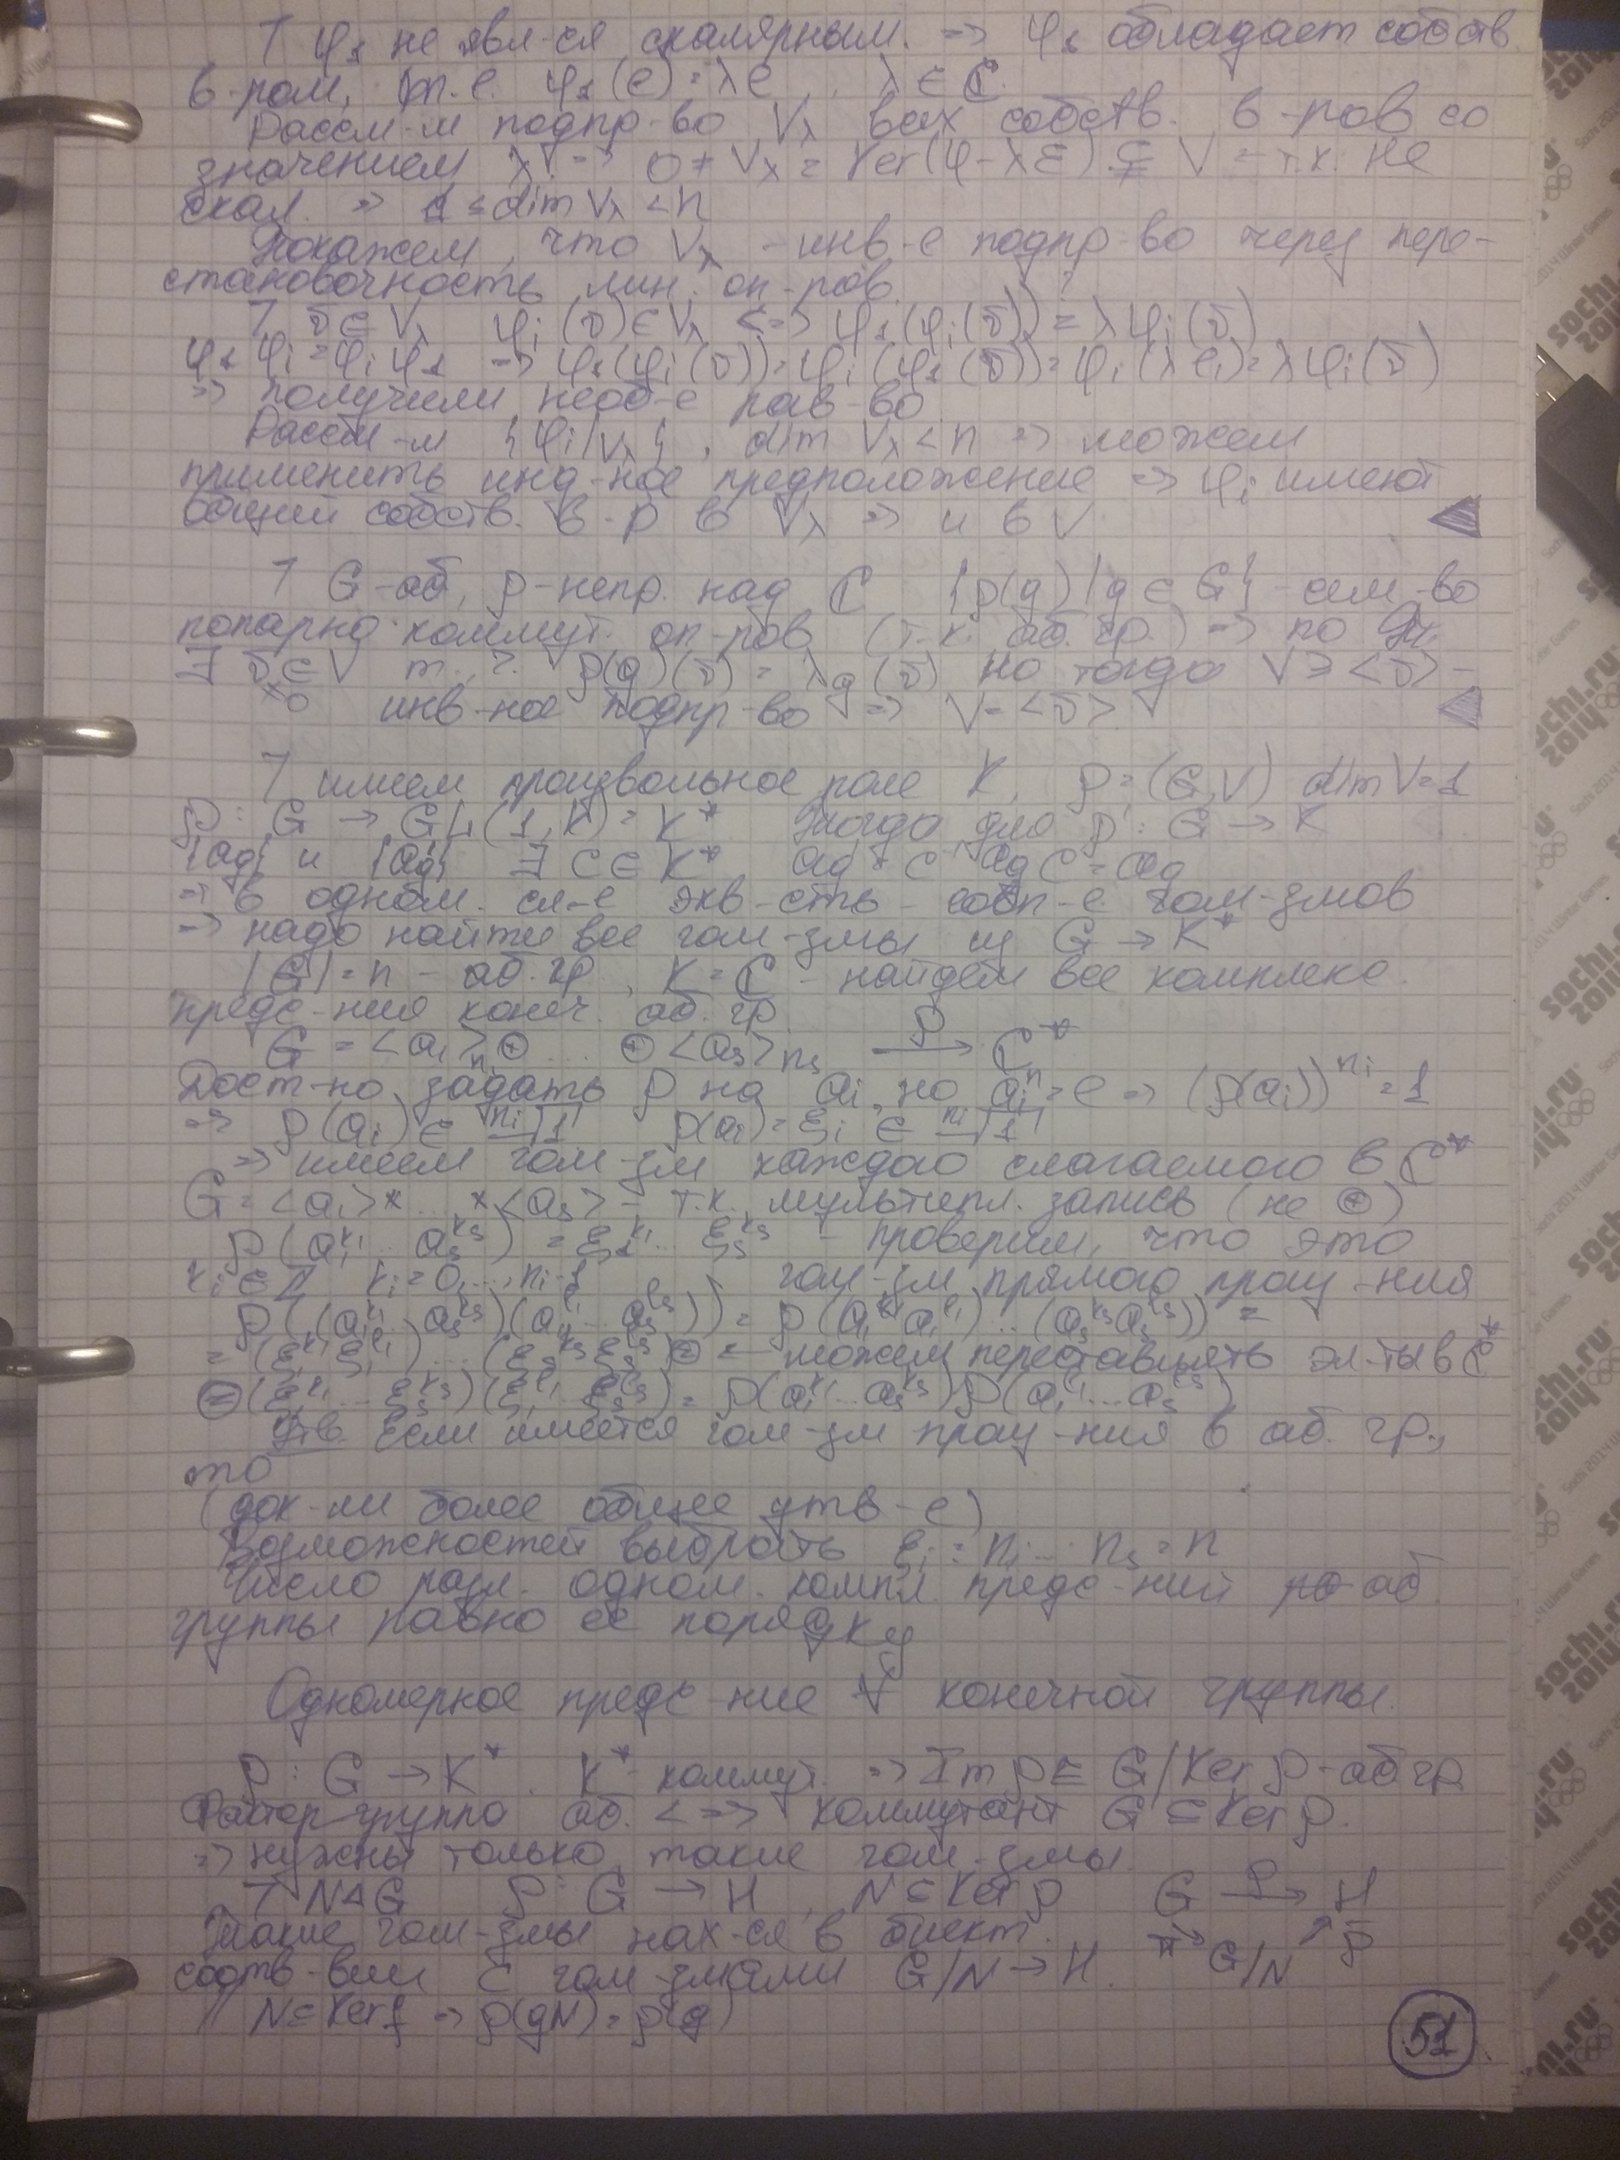 7 φ₁ не явл-ся скалярным. => φ₁ обладает собств.
в-ром, т.е. φ₁(e) = λe, λ ∈ ℂ.
Рассм-м подпр-во V_λ всех собств. в-ров со
значением λ => 0 ≠ V_λ = Ker(φ-λE) ⊊ V - т.к. не
скал. => 1 ≤ dim V_λ < n
Покажем, что V_λ - инв-е подпр-во через пере-
становочность лин. оп-ров.
7 v̄ ∈ V_λ φᵢ(v̄) ∈ V_λ <=> φ₁(φᵢ(v̄)) = λφᵢ(v̄)
φ₁φᵢ = φᵢφ₁ => φ₁(φᵢ(v̄)) = φᵢ(φ₁(v̄)) = φᵢ(λeᵢ) = λφᵢ(v̄)
=> получили необ-е рав-во
Рассм-м {φᵢ|V_λ}, dim V_λ < n => можем
применить инд-ное предположение => φᵢ имеют
общий собств. в-р в V_λ => и в V
7 G-аб, ρ-непр. над ℂ {ρ(g) | g ∈ G} - сем-во
попарно коммут. оп-ров (т.к. аб. гр.) => по
∃ v̄ ∈ V т. ≠0 ρ(g)(v̄) = λ_g(v̄) но тогда V ∋ <v̄> -
инв-ное подпр-во => V = <v̄>
7 имеем произвольное поле K, ρ = (G,V) dim V = 1
ρ: G → GL(1,K) = K* Тогда для ρ': G → K
{a_g} и {a'_g} ∃ c ∈ K* a'_g = c⁻¹a_g c = a_g
=> в одном. сл-е экв-сть - совп-е гом-змов
=> надо найти все гом-змы из G → K*
|G| = n - аб. гр., K = ℂ - найдем все комплекс.
предс-ния конеч. аб. гр.
G = <a₁>_n₁ ⊕ ... ⊕ <a_s>_n_s —ρ→ ℂ*
Дост-но задать ρ на aᵢ, но aᵢⁿ = e => (ρ(aᵢ))^nᵢ = 1
=> ρ(aᵢ) ∈ ⁿⁱ√1 ρ(aᵢ) = ξᵢ ∈ ⁿⁱ√1
=> имеем гом-зм каждого слагаемого в ℂ*
G = <a₁> × ... × <a_s> - т.к. мультипл. запись (не ⊕)
ρ(a₁^k₁ ... a_s^k_s) = ξ₁^k₁ ... ξ_s^k_s - проверим, что это
kᵢ ∈ ℤ kᵢ = 0, ..., nᵢ-1 гом-зм прямого произ-ния
ρ((a₁^k₁ ... a_s^k_s)(a₁^l₁ ... a_s^l_s)) = ρ(a₁^k₁ a₁^l₁) ... (a_s^k_s a_s^l_s)) =
= (ξ₁^k₁ ξ₁^l₁) ... (ξ_s^k_s ξ_s^l_s) ⊜ ← можем переставлять эл-ты в ℂ*
⊜ (ξ₁^k₁ ... ξ_s^k_s)(ξ₁^l₁ ... ξ_s^l_s) = ρ(a₁^k₁ ... a_s^k_s)ρ(a₁^l₁ ... a_s^l_s)
Утв. Если имеется гом-зм произ-ния в аб. гр.,
то
(док-ли более общее утв-е)
Возможностей выбрать ξᵢ: n₁ ... n_s = n
Число разл. одном. компл. предс-ний аб.
группы равно ее порядку
Одномерное предс-ние ∀ конечной группы.
ρ: G → K*. K* коммут. => Im ρ ≅ G/Ker ρ - аб. гр.
Фактор-группа аб. <=> коммутант G ⊆ Ker ρ.
=> нужны только такие гом-змы.
7 N ⊲ G ρ: G → H, N ⊆ Ker ρ G —ρ→ H
Такие гом-змы нах-ся в биект. π↘ G/N ↗ ρ̄
соотв-вии с гом-змами G/N → H.
N ⊆ Ker f => ρ̄(gN) = ρ(g)
51
sochi.ru
2014